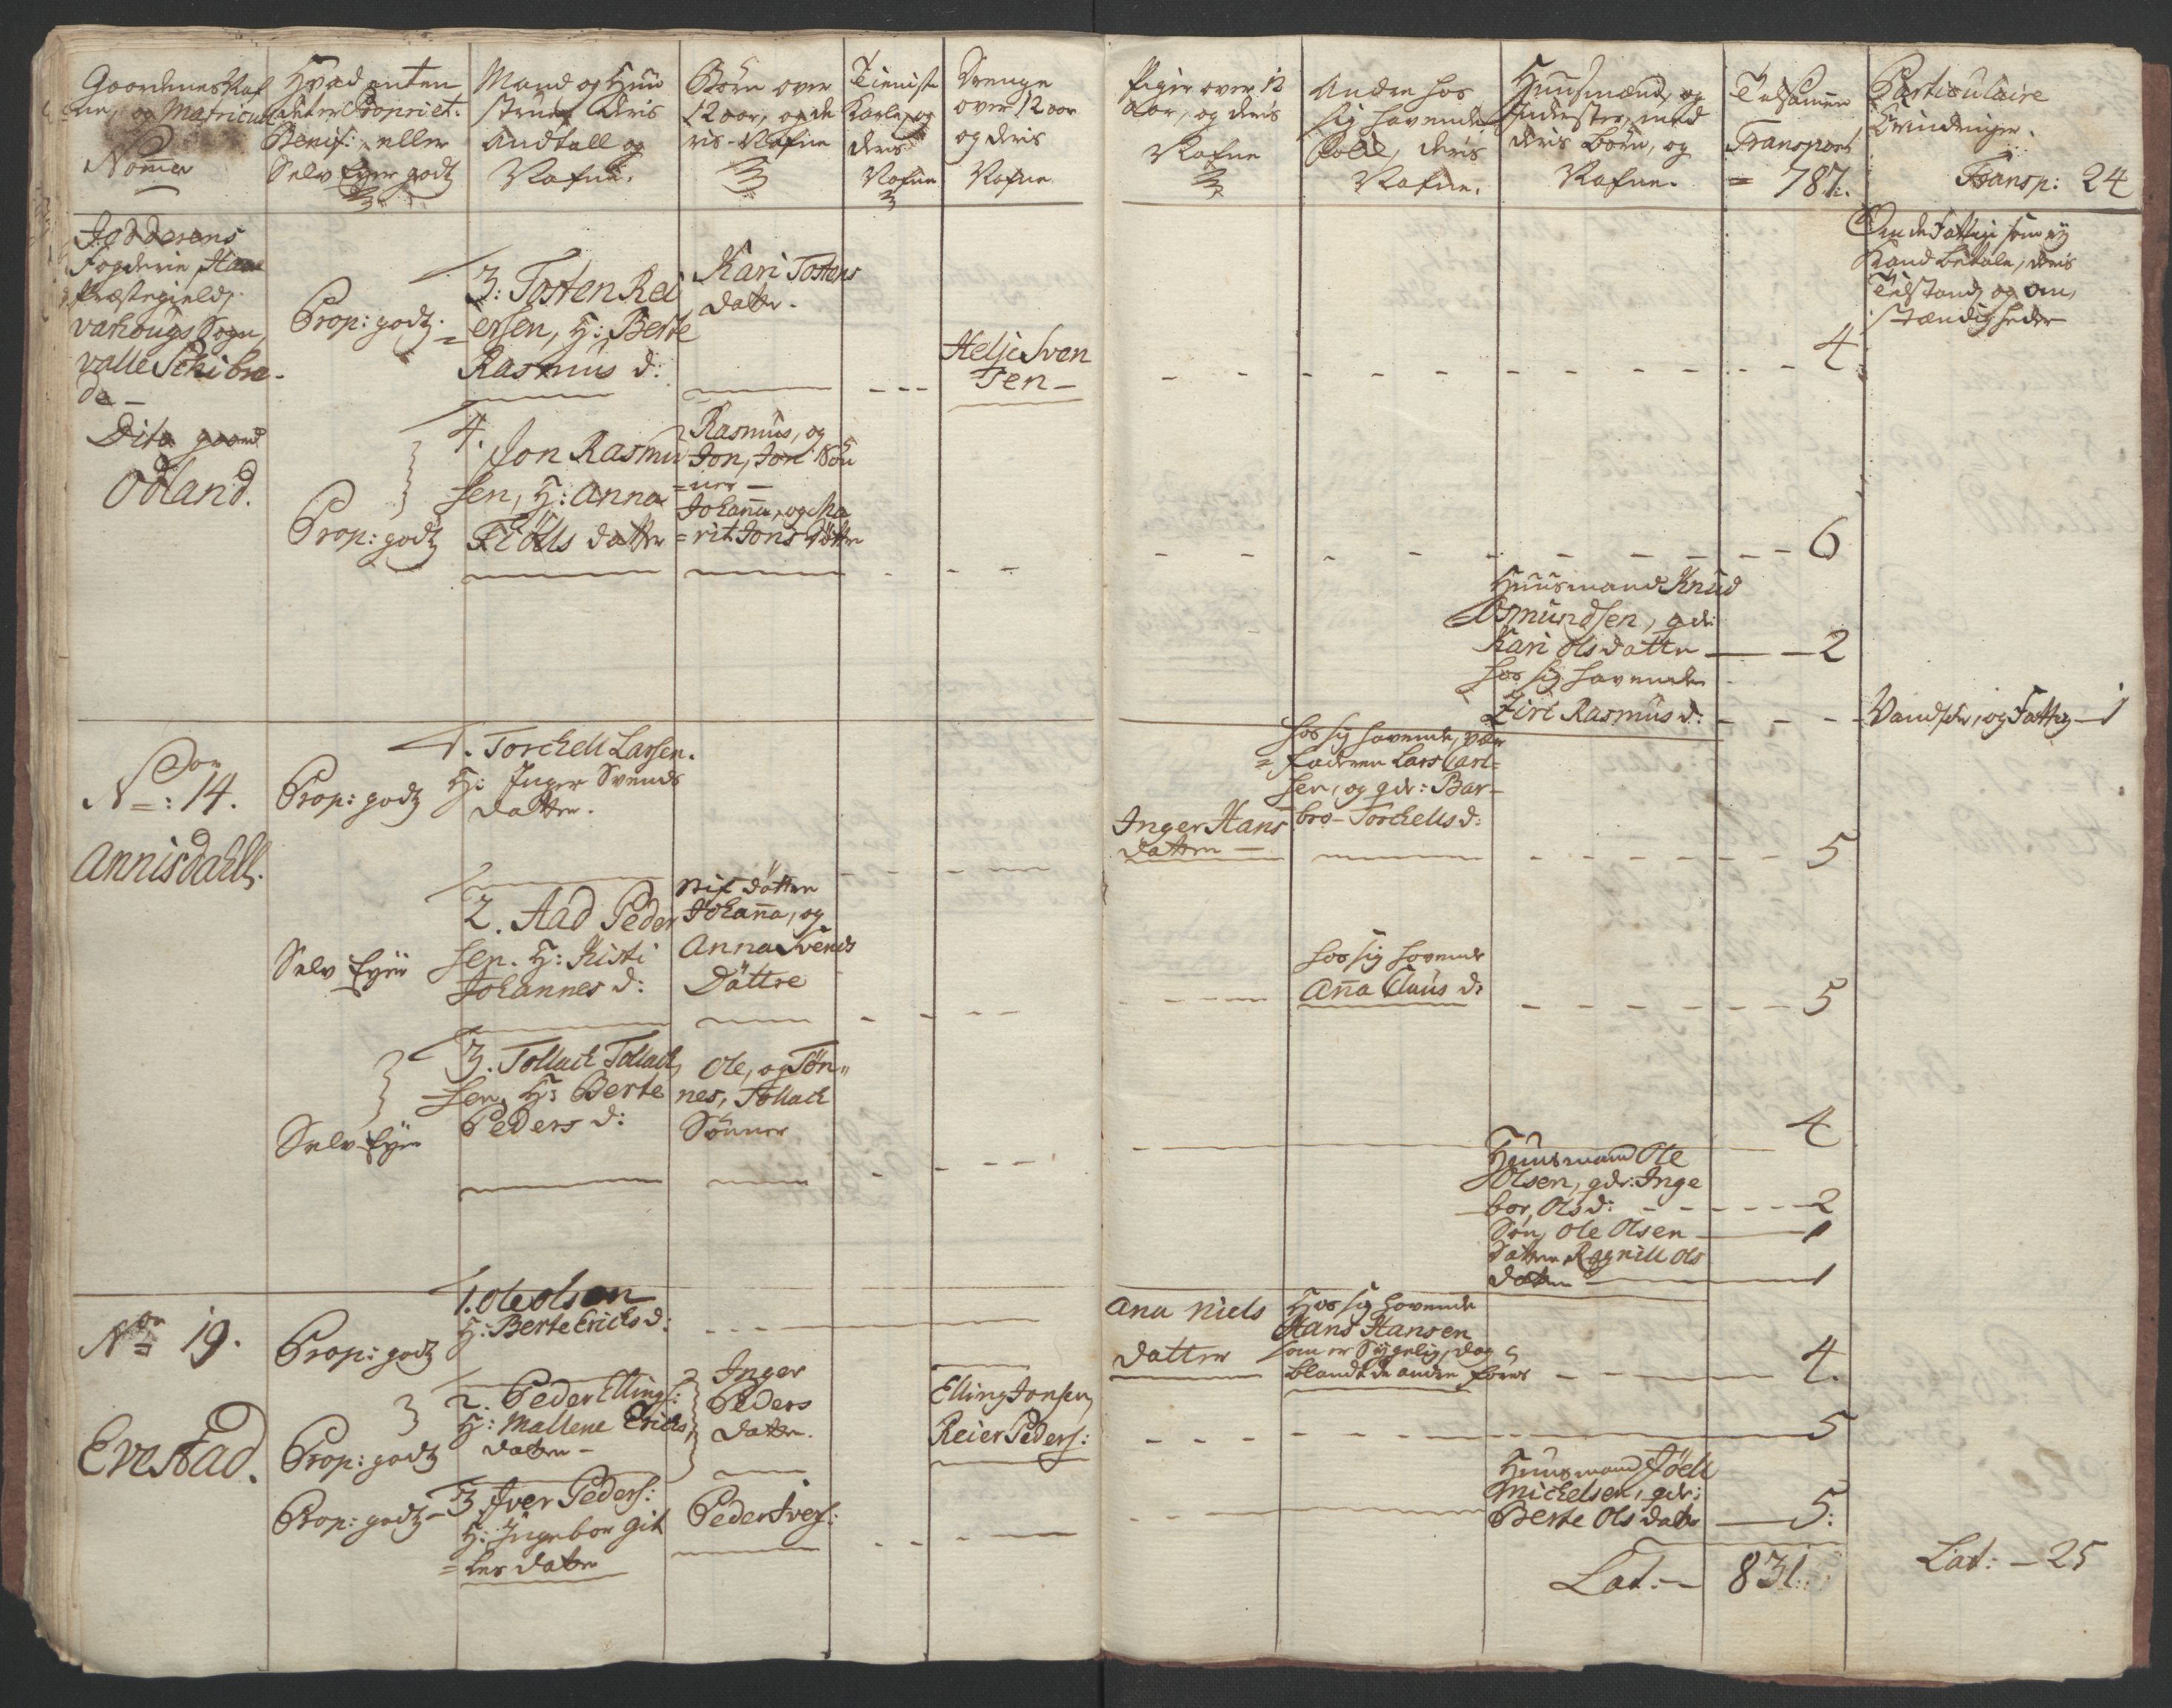 Gaardenes Naf
ne, og Matricul
Nomer
Hvad enten
det er Propriet:
Benif: eller
Selv Eyer godz
Mand og Hu
strue deris
Andtall og
Nafne.
Børn over
12 aar, og de
ris Nafne
Tieniste
Karle, og
deris
Nafne
Drenge
over 12 aar
og deris
Nafne
Piger over 12
aar, og deris
Nafne
Andre hos
sig havende
Folk, deris
Nafne.
Huusmænd, og
Inderster, med
deris børn, og
Nafne.
Tilsammen
Transport
= 787:
Particulaire
Erindringer.
Transp: 24
Jedderens
Fogderie, Haae
Præstegield,
Varhougs Sogn,
Valle Schibre-
de -
Dito gaard
Odland.
Prop: godz.
3: Tosten Rei
ersen, H: Berte
Rasmus d:
Kari Tostens
datter.
Helje Sven
sen -
4
Om de Fattige som ey
Kand betale, deris
Tilstand og om,
stændigheder
Prop: godz
4. Jon Rasmu
sen, H: Anna
Thölls datter
Rasmus, og
Jon, Jon Sön
=ner -
Johanna, og Ma
=rit Jons Döttre
6
Huusmand Knud
Osmundsen, qde:
Kari Olsdatter - 2
hos sig havende
Ziri Rasmus d:
Vandfør, og Fattig - 1
No: 14.
Annisdahll.
Prop: godz
1. Torckell Larsen.
H: Inger Svends
datter.
Inger Hans
datter -
hos sig havende, vær
= faderen Lars Carl=
sen, og qde: Bar-
bro Torckells d:
5
Selv Eyer
2. Aad Peder
sen. H: Kisti
Johannes d:
Stif döttre
Johanna, og
Anna Svends
Döttre
hos sig havende
Anna Claus d:
5
Selv Eyer
3. Tollack Tollack,
sen, H: Berte
Peders d:
Ole, og Tön"
nes, Tollack
Sönner
4
Huusmand Ole
Olsen, qde: Inge
bor, Ols d: - 2
Søn, Ole Olsen - 1
datter Ragnill Ols
datter - 1
No 19.
Evestad.
Prop: godz
1. Ole Olsen
H: Berte Ericks d:
Ana Niels
datter
Hos sig havende
Hans Hansen
som er Sygelig, dog
blandt de andre føres
4.
Prop: godz
2. Peder Ellings:
H: Mallene Ericks,
datter -
Inger
Peders
datter.
Elling Jonsen,
Reier Peders:
5
Prop: godz -
3 Iver Peders:
H: Ingebor Git
=les datter
Peder Ivers:
Huusmand Jöell
Michelsen, qde:
Berte Ols datter - 5:
Lat: - 831:
Lat: - 25